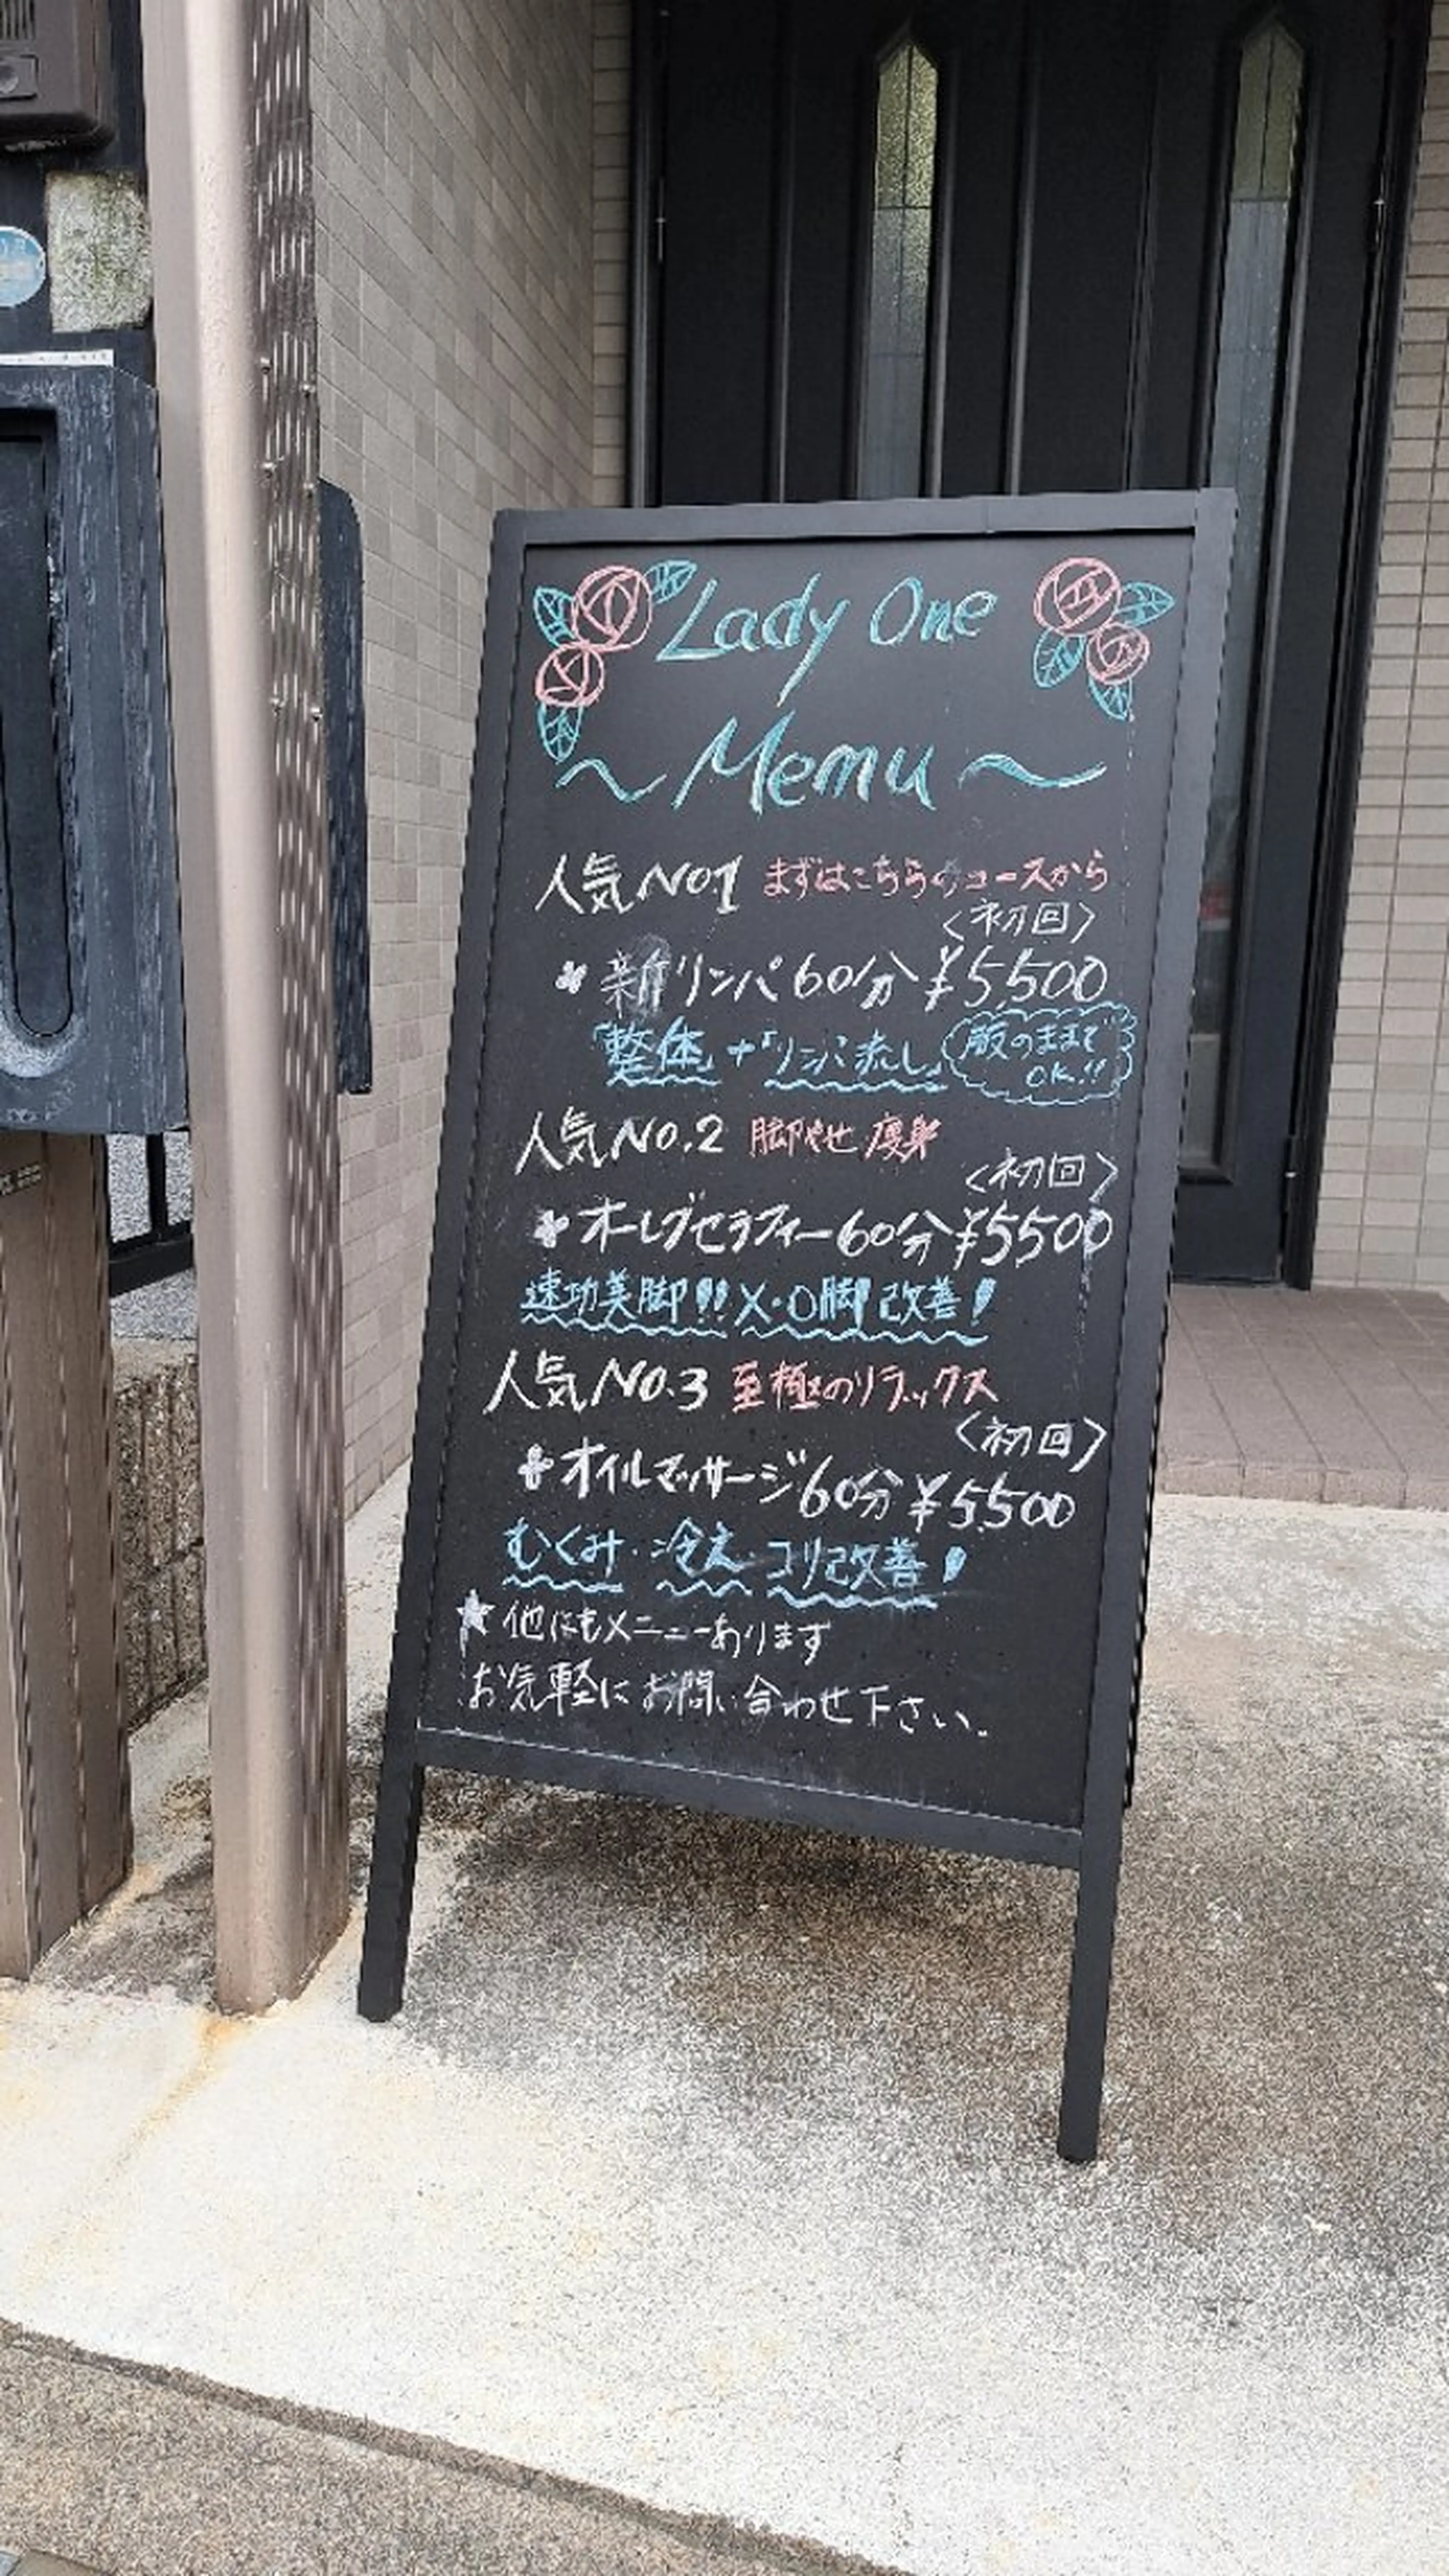 Lady One
～Memu～
人気NO.1 まずはこちらのコースから
〈初回〉
新リンパ60分 ¥5,500
「整体」+「リンパ流し」
服のままで
OK!!
人気NO.2 脚やせ 痩身
〈初回〉
オーレブセラフィー60分 ¥5500
速功美脚!! X・O脚改善!
人気NO.3 至極のリラックス
〈初回〉
オイルマッサージ60分 ¥5,500
むくみ・冷え・コリ改善!
★他にもメニューあります
お気軽にお問い合わせ下さい。